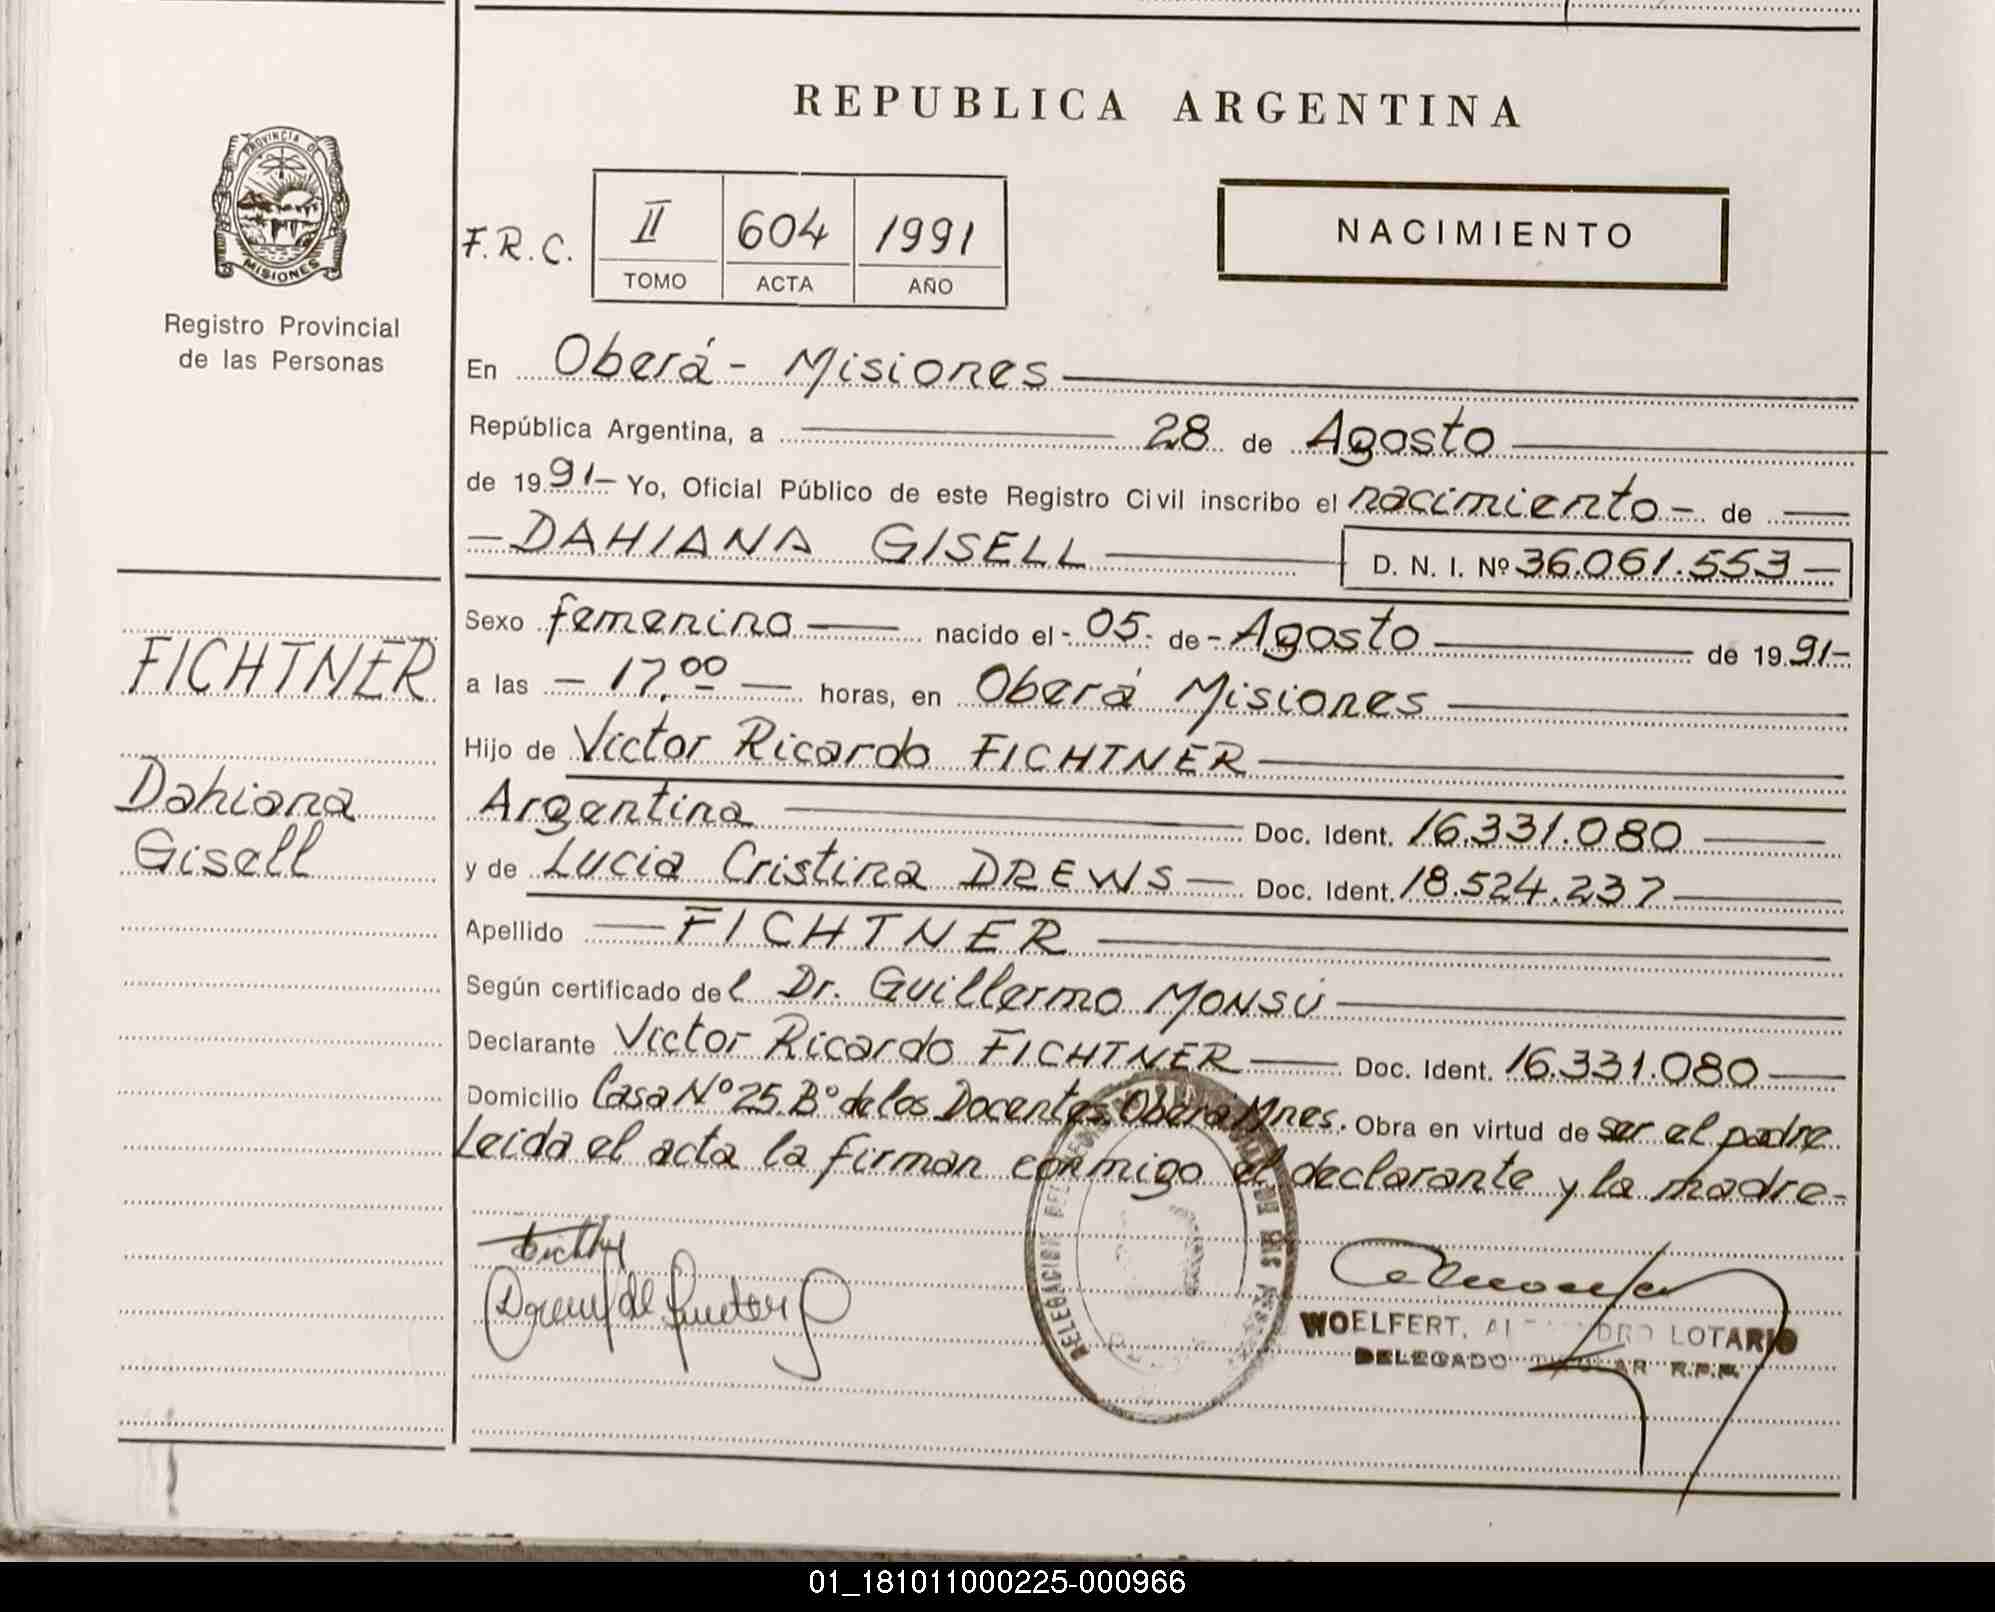 REPUBLICA ARGENTINA
PROVINCIA DE
MISIONES
Registro Provincial
de las Personas
F.R.C.
II 604 1991
TOMO ACTA AÑO
NACIMIENTO
En Oberá - Misiones
República Argentina, a 28 de Agosto
de 1991- Yo, Oficial Público de este Registro Civil inscribo el nacimiento - de
- DAHIANA GISELL D. N. I. Nº 36.061.553 -
Sexo femenino nacido el - 05 - de - Agosto de 1991-
a las - 17.00 - horas, en Oberá Misiones
Hijo de Victor Ricardo FICHTNER
Argentina Doc. Ident. 16.331.080
y de Lucia Cristina DREWS - Doc. Ident. 18.524.237
Apellido FICHTNER
Según certificado del Dr. Guillermo MONSÚ
Declarante Victor Ricardo FICHTNER Doc. Ident. 16.331.080
Domicilio Casa Nº 25 Bº de los Docentes Oberá Mnes. Obra en virtud de ser el padre
Leida el acta la firman conmigo el declarante y la madre-
FICHTNER
Dahiana
Gisell
DELEGACION DEL
WOELFERT, LOTARIO
DELEGADO R.P.P.
01_181011000225-000966